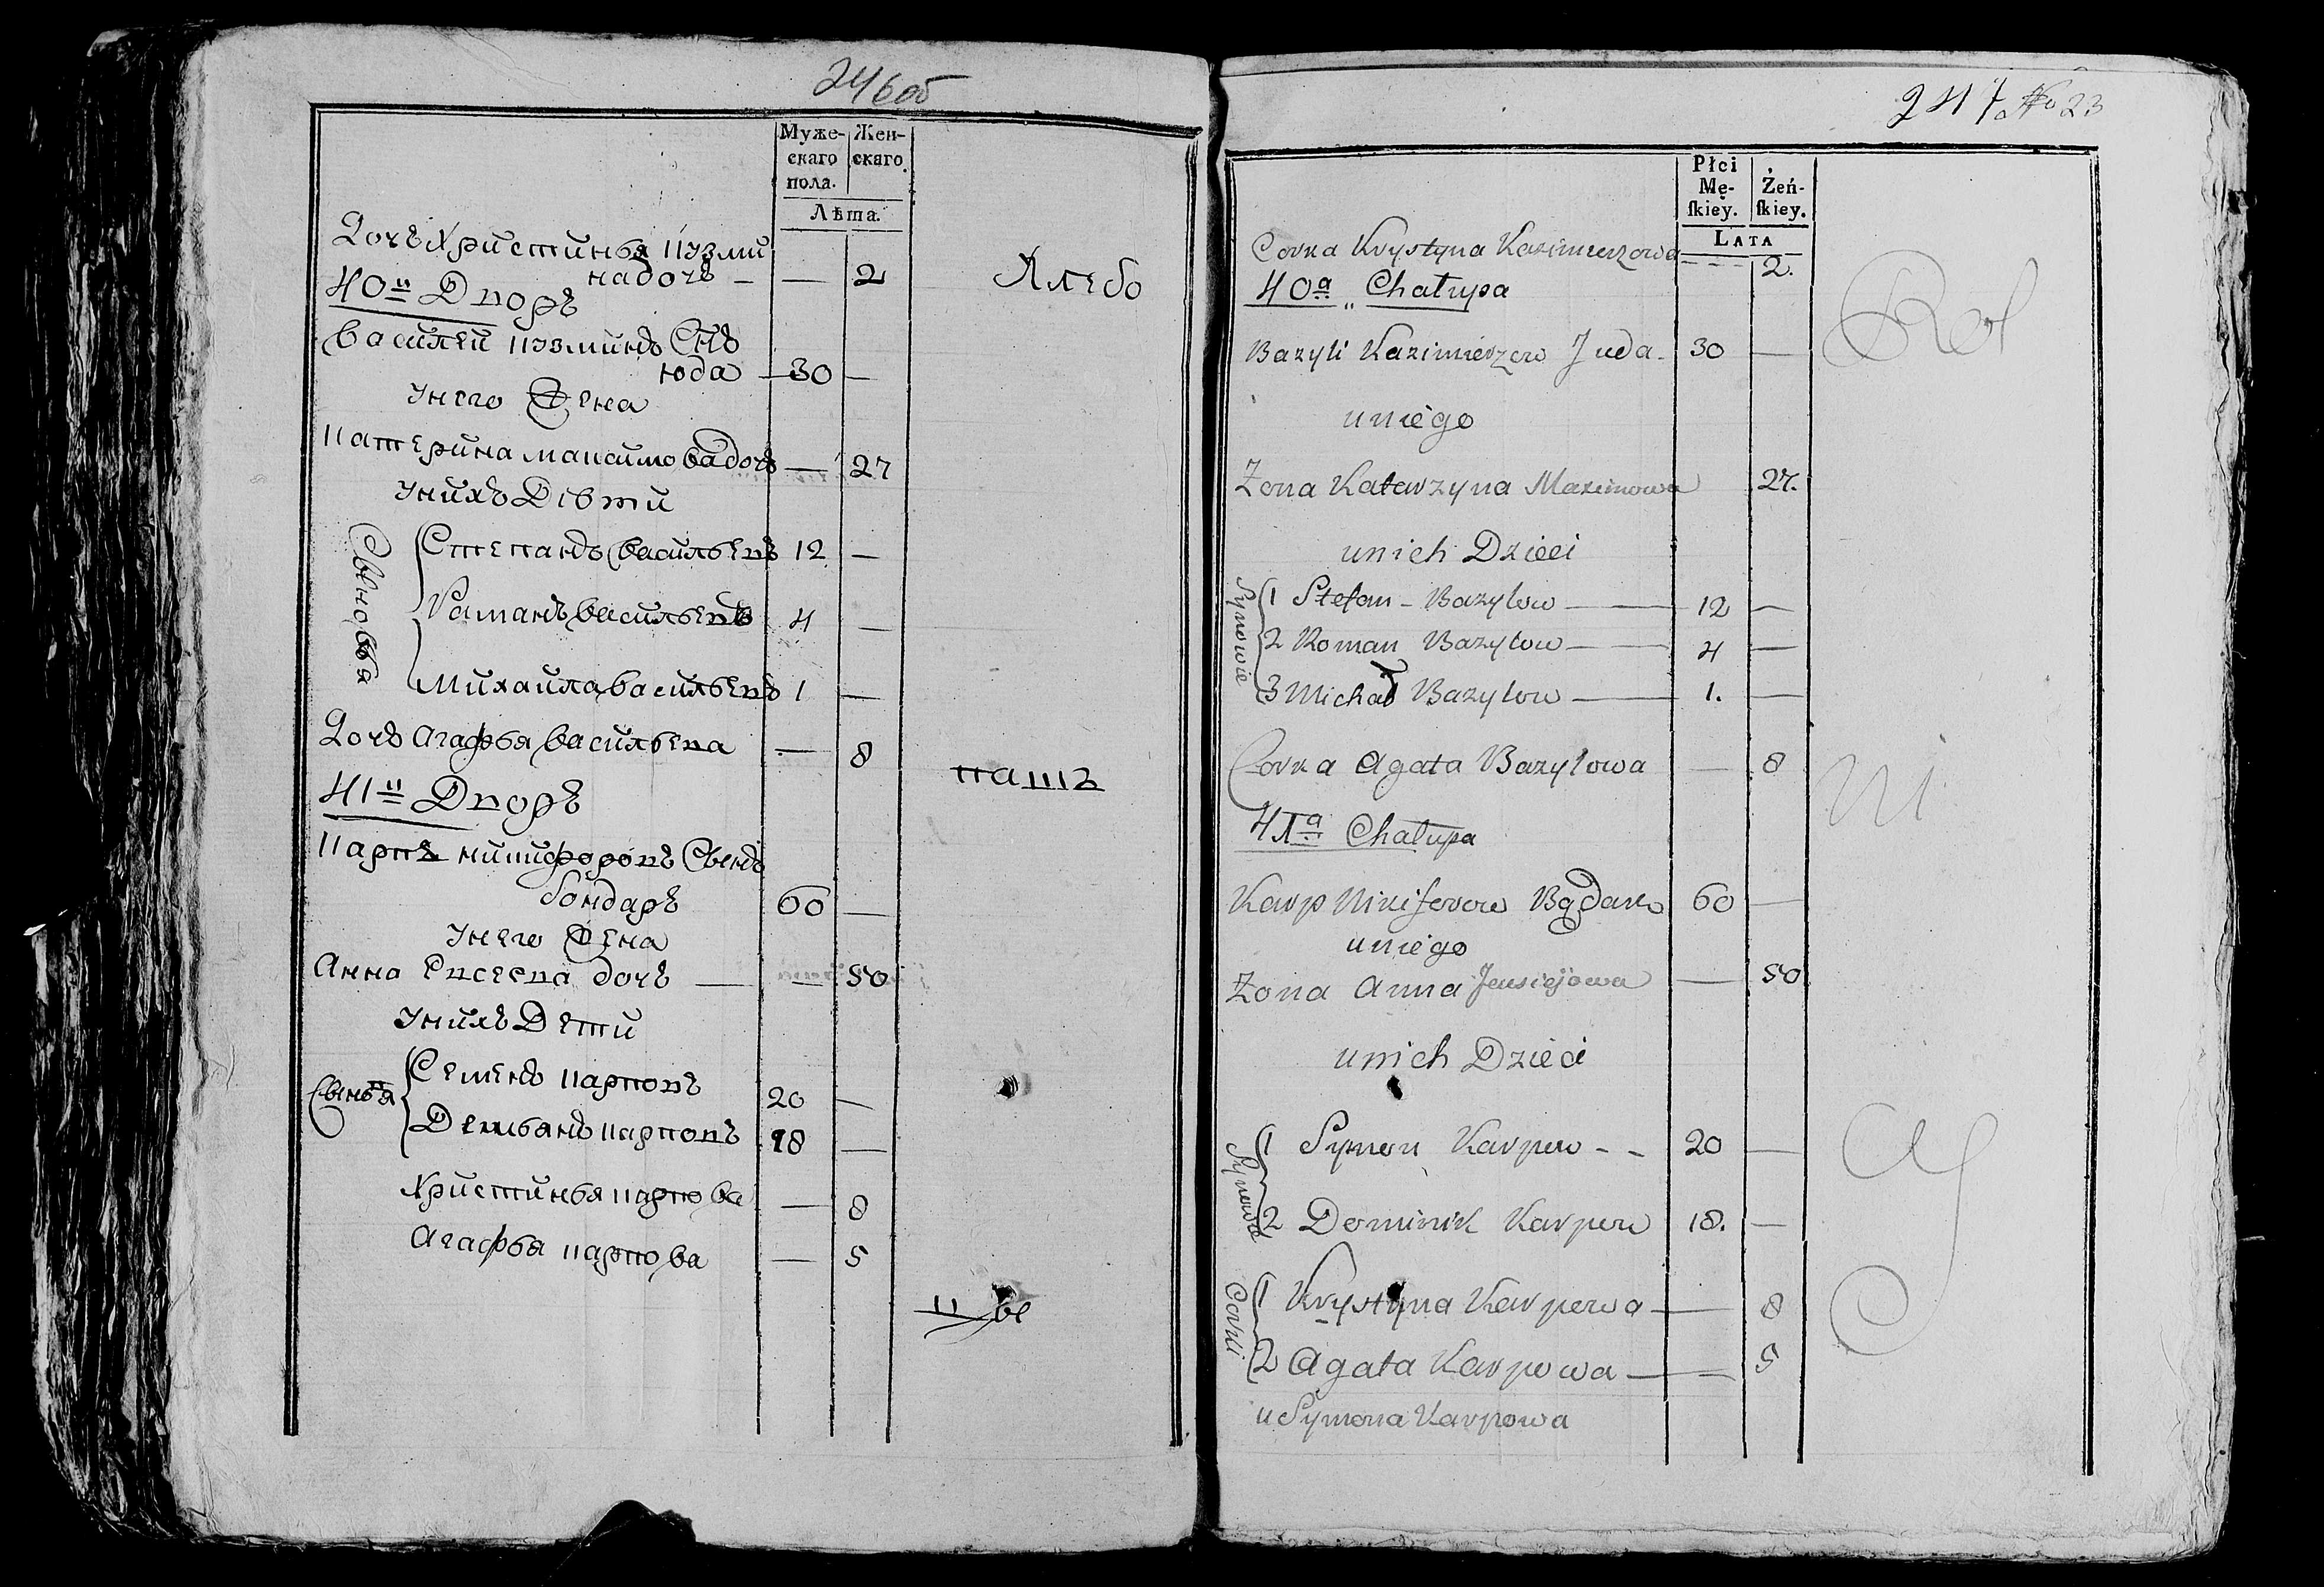 246об
Муже-
скаго
пола.
Жен-
скаго.
Лѣта.
Дочь Христинья Кузми
на дочь — — 2
Хлебо
40й Дворъ
Василей Кузминъ Снъ
Юда — 30 —
Унего Жена
Катерина Максимова дочь — 27
Унихъ Дѣти
Сыновья
Степанъ Васильевъ 12 —
Раманъ Васильевъ 4 —
Михайла Васильевъ 1 —
Дочь Агафья Васильева — 8
паш
41й Дворъ
Карпъ Никифоровъ Сынъ
Бондарь 60 —
Унего Жена
Анна Евсеева дочь — — 50
Унихъ Дети
Сынья
Семенъ Карповъ 20 —
Демьянъ Карповъ 18 —
Христинья Карпова — 8
Агафья Карпова — 5
247 No 23
Płci
Mę-
ſkiey.
Żeń-
ſkiey.
LATA
Corka Krystyna Kazimierzowa — 2.
40a Chałupa
Rol
Bazyli Kazimierzow Juda 30 —
uniego
Żona Katarzyna Maximowa 27.
unich Dzieci
Synowie
1 Stefan Bazylow — 12 —
2 Roman Bazylow — 4 —
3 Michał Bazylow — 1. —
Corka Agata Bazylowa — 8
ni
41a Chałupa
Karp Nikiforow Bądarz 60 —
uniego
Żona Anna Jewsiejowa — 50
unich Dzieci
Synowie
1 Symon Karpow - - 20 —
2 Dominik Karpow 18. —
Corki
1 Krystyna Karpowa — 8
2 Agata Karpowa — 5
u Symona Karpowa